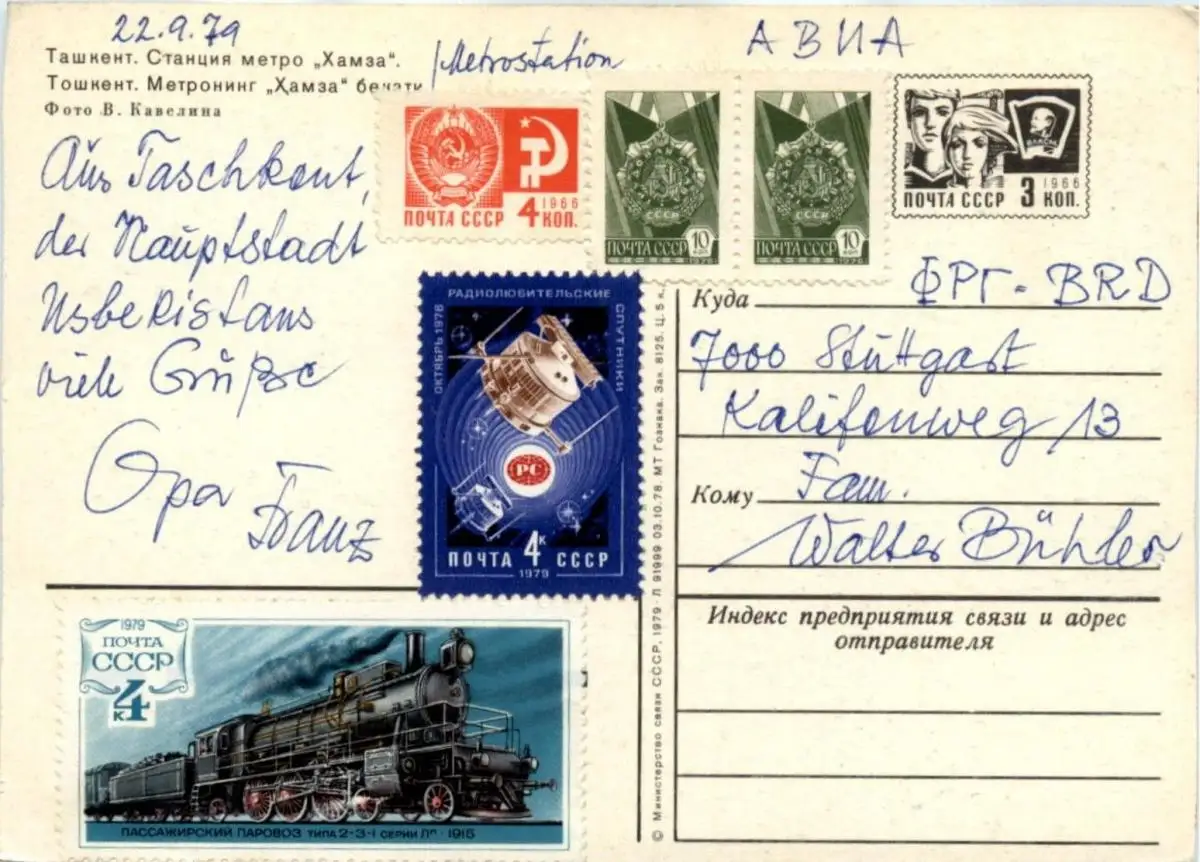 22.9.79
Ташкент. Станция метро „Хамза“.
Тошкент. Метронинг „Ҳамза“ бекати
Фото В. Кавелина
Metrostation
АВИА
Aus Taschkent,
der Hauptstadt
Usbekistans
viele Grüße
Opa Franz
ПОЧТА СССР 4 КОП.
1966
СССР
ПОЧТА СССР 10 КОП
1976
СССР
ПОЧТА СССР 10 КОП
1976
ВЛКСМ
ПОЧТА СССР 3 КОП.
1966
РАДИОЛЮБИТЕЛЬСКИЕ
СПУТНИКИ
ОКТЯБРЬ 1978
РС
ПОЧТА 4к СССР
1979
Куда ФРГ - BRD
7000 Stuttgart
Kalifenweg 13
Кому Fam.
Walter Bühler
Индекс предприятия связи и адрес
отправителя
© Министерство связи СССР, 1979 · Л 91999 03.10.78. МТ Гознака. Зак. 8125. Ц. 5 к.
1979
ПОЧТА
СССР
4к
ПАССАЖИРСКИЙ ПАРОВОЗ ТИПА 2-3-1 СЕРИИ Лп · 1915